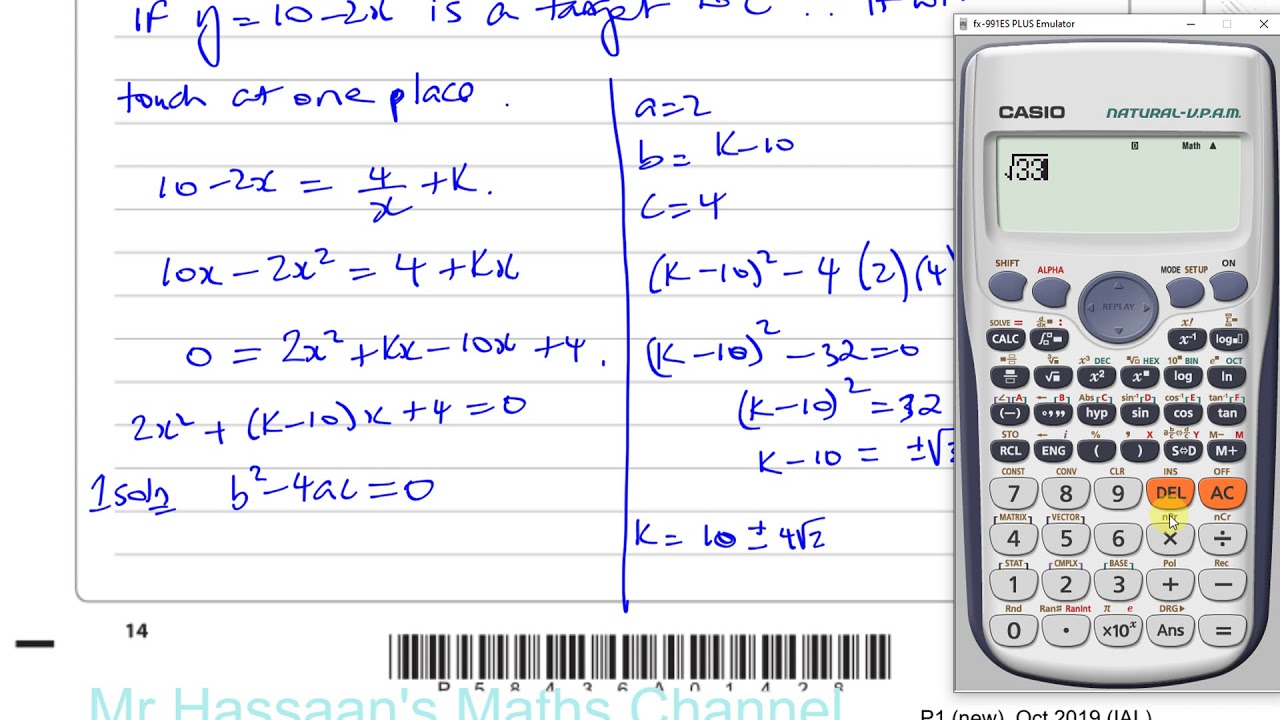 if y = 10 - 2x is a target
touch at one place.
10 - 2x = 4/x + K.
10x - 2x² = 4 + Kx
0 = 2x² + Kx - 10x + 4.
2x² + (K-10)x + 4 = 0
1 soln b² - 4ac = 0
a = 2
b = K - 10
c = 4
(K-10)² - 4(2)(4)
(K-10)² - 32 = 0
(K-10)² = 32
K - 10 = ±√3
K = 10 ± 4√2
14
P58436A01428
Mr Hassaan's Maths Channel
P1 (new) Oct 2019 (IAL)
fx-991ES PLUS Emulator
CASIO NATURAL-V.P.A.M.
D Math ▲
√33
SHIFT ALPHA REPLAY MODE SETUP ON
SOLVE = d/dx = : x! Σ=
CALC ∫ x⁻¹ log
³√ x³ DEC ˣ√ HEX 10ˣ BIN eˣ OCT
√ x² xˣ log ln
∠ A ← B Abs C sin⁻¹ D cos⁻¹ E tan⁻¹ F
(−) °,,, hyp sin cos tan
STO ← i % , X a b/c⇔d/c Y M− M
RCL ENG ( ) S⇔D M+
CONST CONV CLR INS OFF
7 8 9 DEL AC
MATRIX VECTOR nPr nCr
4 5 6 × ÷
STAT CMPLX BASE Pol Rec
1 2 3 + −
Rnd Ran# RanInt π e DRG▶
0 . ×10ˣ Ans =